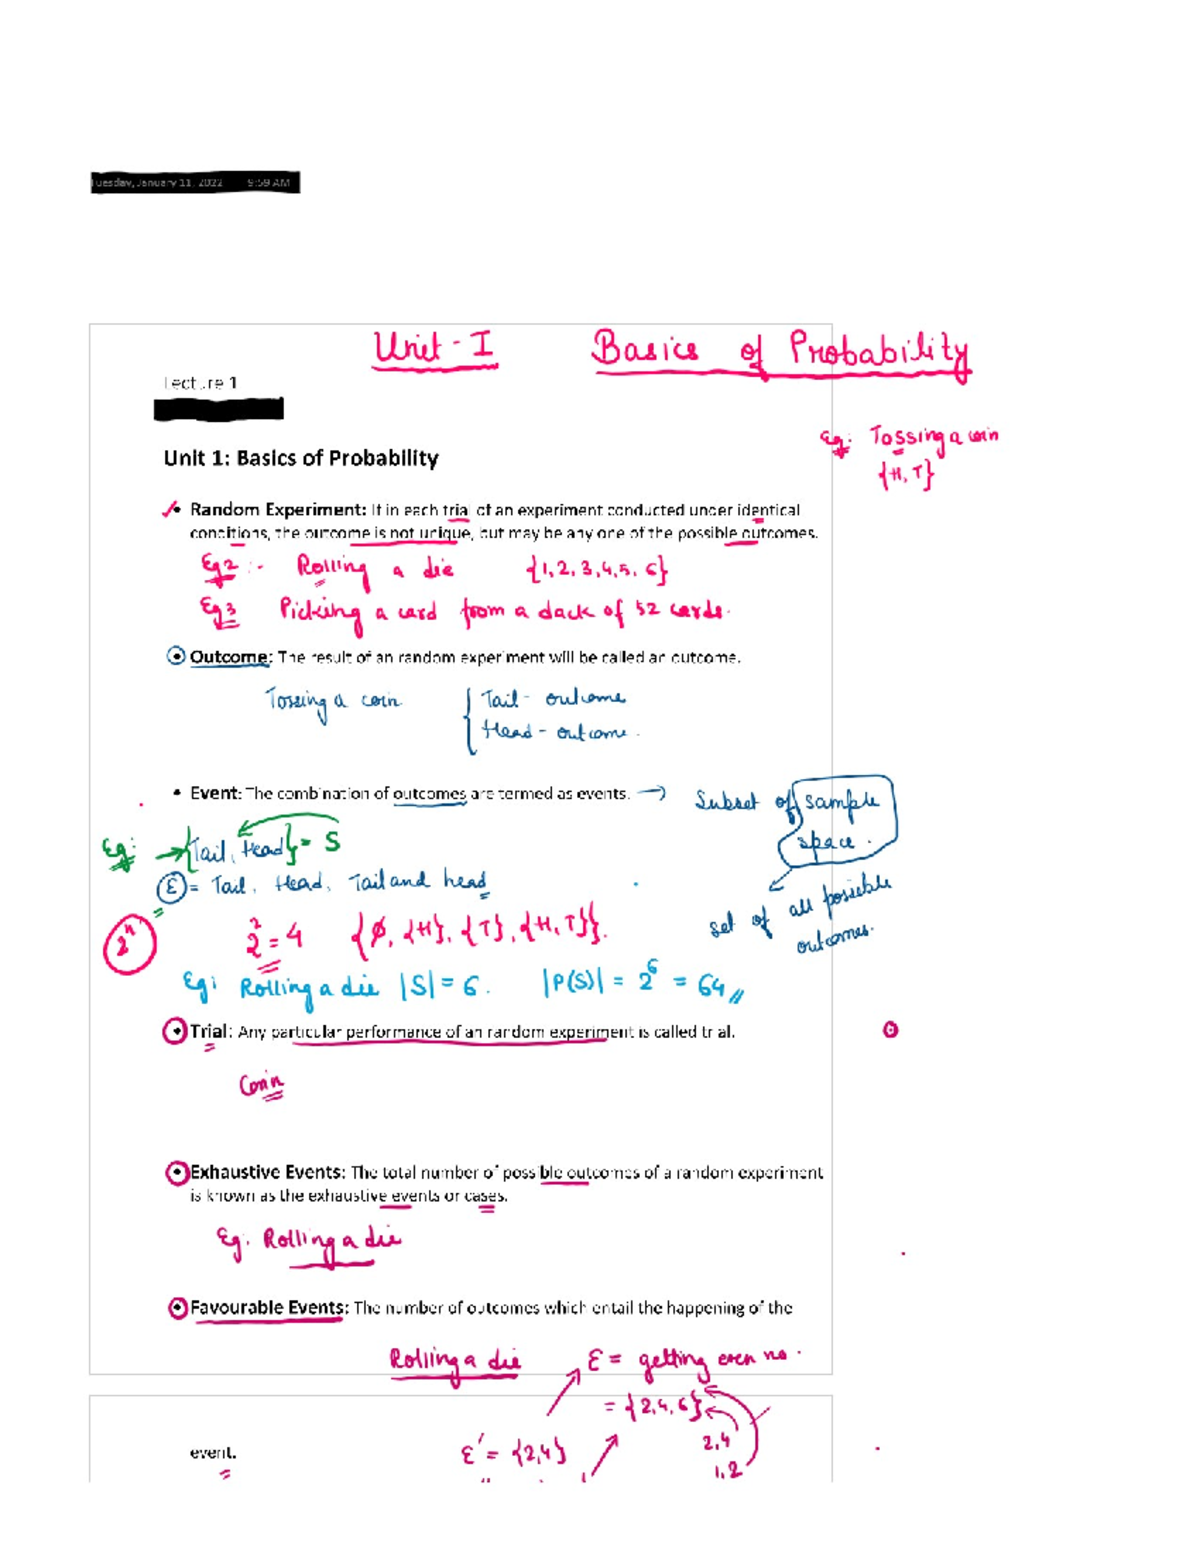 Tuesday, January 11, 2022 9:59 AM
Unit - I Basics of Probability
Lecture 1
Eg: Tossing a coin
{H, T}
Unit 1: Basics of Probability
• Random Experiment: If in each trial of an experiment conducted under identical
conditions, the outcome is not unique, but may be any one of the possible outcomes.
Eg2 :- Rolling a die {1, 2, 3, 4, 5, 6}
Eg3 Picking a card from a dack of 52 cards.
• Outcome: The result of an random experiment will be called an outcome.
Tossing a coin { Tail - outcome
Head - outcome.
• Event: The combination of outcomes are termed as events. → Subset of sample
space.
Eg: → {Tail, Head} = S
E = Tail, Head, Tail and head
set of all possible
outcomes.
2ⁿ 2² = 4 {φ, {H}, {T}, {H, T}}.
Eg: Rolling a die |S| = 6. |P(S)| = 2⁶ = 64
• Trial: Any particular performance of an random experiment is called trial.
Coin
• Exhaustive Events: The total number of possible outcomes of a random experiment
is known as the exhaustive events or cases.
Eg. Rolling a die
• Favourable Events: The number of outcomes which entail the happening of the
Rolling a die E = getting even no.
= {2,4,6}
event. E' = {2,4} 2,4
1,2